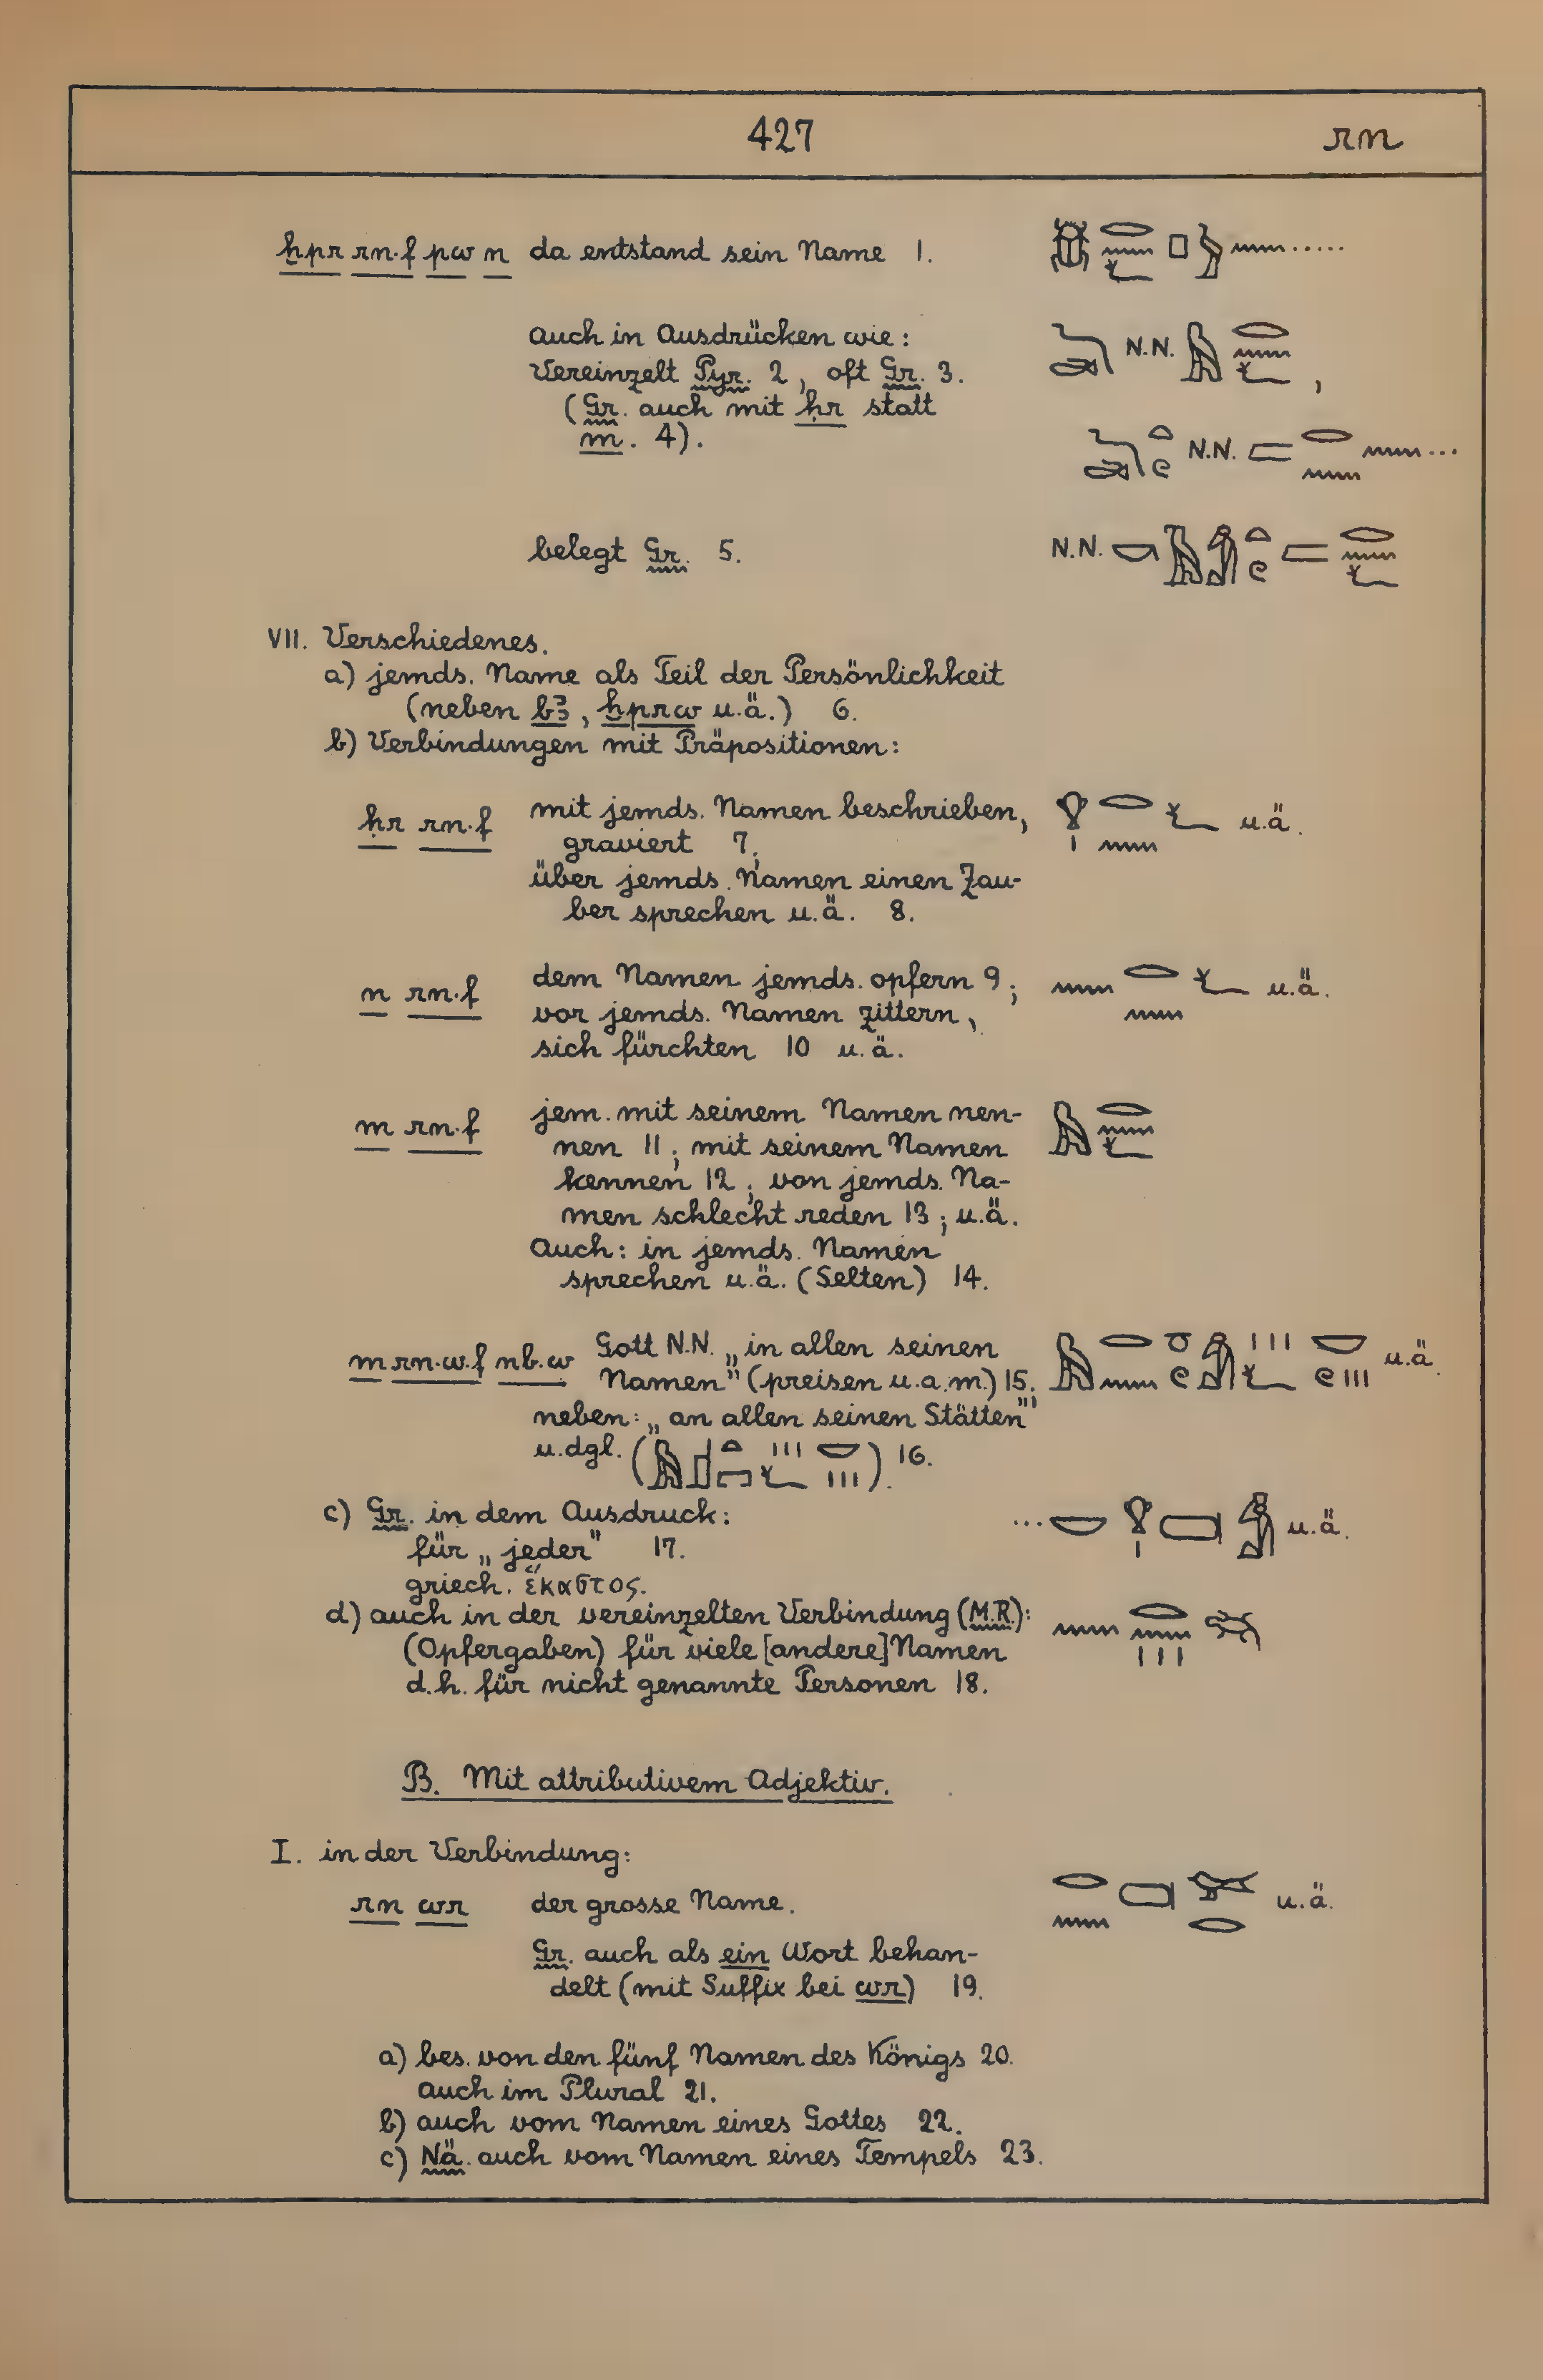 427 rn
ḫpr rn·f pw n da entstand sein Name 1. 𓆣𓂋𓈖𓆑𓊪𓅱𓈖 .....
auch in Ausdrücken wie: N.N. 𓅓𓂋𓈖𓆑,
Vereinzelt Pyr. 2, oft Gr. 3.
(Gr. auch mit ḥr statt
m. 4). N.N. 𓂋𓈖𓈖 ...
belegt Gr. 5. N.N. 𓂋𓈖𓆑
VII. Verschiedenes.
a) jemds. Name als Teil der Persönlichkeit
(neben bꜣ, ḫprw u.ä.) 6.
b) Verbindungen mit Präpositionen:
ḥr rn·f mit jemds. Namen beschrieben, 𓁷𓏤𓂋𓈖𓆑 u.ä.
graviert 7;
über jemds. Namen einen Zau-
ber sprechen u.ä. 8.
n rn·f dem Namen jemds. opfern 9; 𓈖𓂋𓈖𓆑 u.ä.
vor jemds. Namen zittern,
sich fürchten 10 u.ä.
m rn·f jem. mit seinem Namen nen- 𓅓𓂋𓈖𓆑
nen 11; mit seinem Namen
kennen 12; von jemds. Na-
men schlecht reden 13; u.ä.
Auch: in jemds. Namen
sprechen u.ä. (Selten) 14.
m rn·w·f nb·w Gott N.N. „in allen seinen u.ä.
Namen" (preisen u.a.m.) 15;
neben: „an allen seinen Stätten"
u.dgl. ( ) 16.
c) Gr. in dem Ausdruck: ...𓎟𓁷𓏤𓍷 u.ä.
für „jeder" 17.
griech. ἕκαστος.
d) auch in der vereinzelten Verbindung (M.R.): 𓈖𓂋𓈖𓏥𓆈
(Opfergaben) für viele [andere] Namen
d.h. für nicht genannte Personen 18.
B. Mit attributivem Adjektiv.
I. in der Verbindung:
rn wr der grosse Name. 𓂋𓈖𓍷𓅨𓂋 u.ä.
Gr. auch als ein Wort behan-
delt (mit Suffix bei wr) 19.
a) bes. von den fünf Namen des Königs 20.
auch im Plural 21.
b) auch vom Namen eines Gottes 22.
c) Nä. auch vom Namen eines Tempels 23.